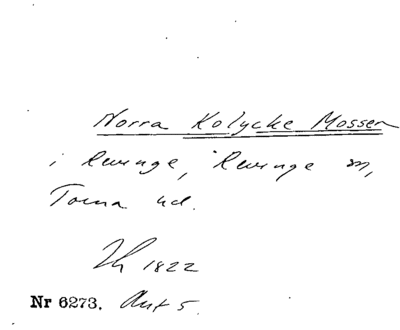 Norra Kolycke Mossen
i Revinge, Revinge sn,
Torna hd.
1822
Nr 6273. Akt 5.